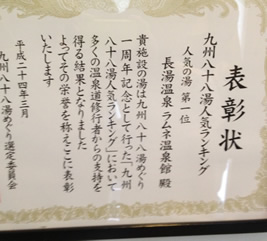 表彰状
九州八十八湯人気ランキング
人気の湯 第一位
長湯温泉 ラムネ温泉館 殿
貴施設の湯は九州八十八湯めぐり
一周年記念として行った「九州
八十八湯人気ランキング」において
多くの温泉道修行者からの支持を
得る結果となりました
よってその栄誉を称えここに表彰
いたします
平成二十四年三月
九州八十八湯めぐり選定委員会